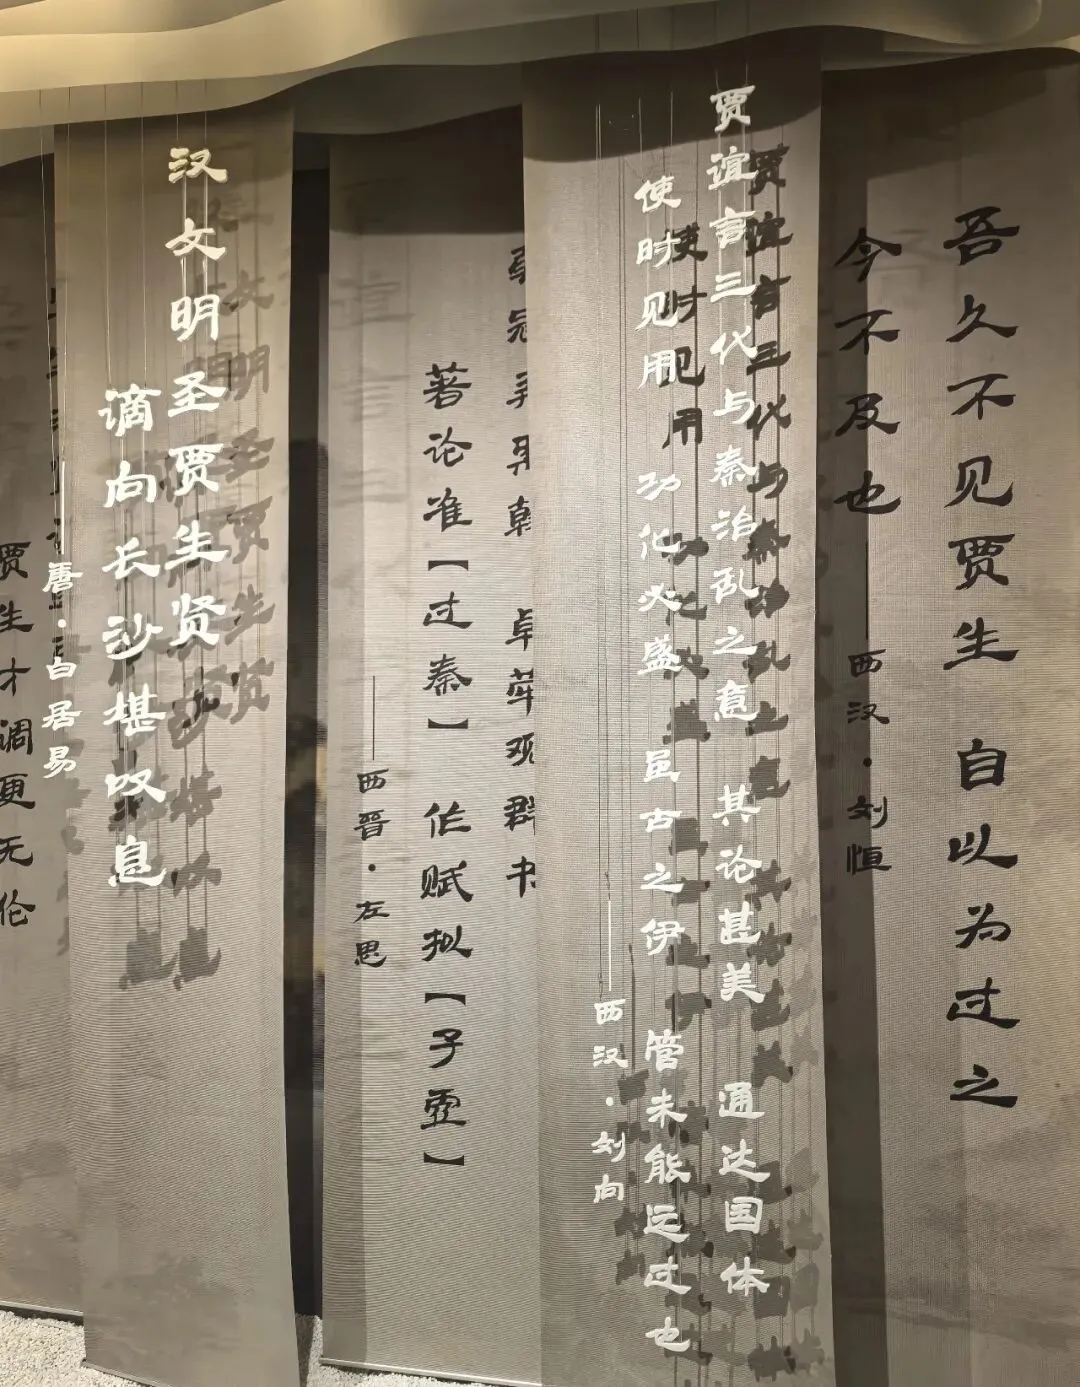 吾久不见贾生 自以为过之
今不及也
——西汉·刘恒
贾谊言三代与秦治乱之意 其论甚美 通达国体
使时见用 功化必盛 虽古之伊 管未能远过也
——西汉·刘向
弱冠弄柔翰 卓荦观群书
著论准【过秦】 作赋拟【子虚】
——西晋·左思
汉文明圣贾生贤
谪向长沙堪叹息
——唐·白居易
贾生才调更无伦